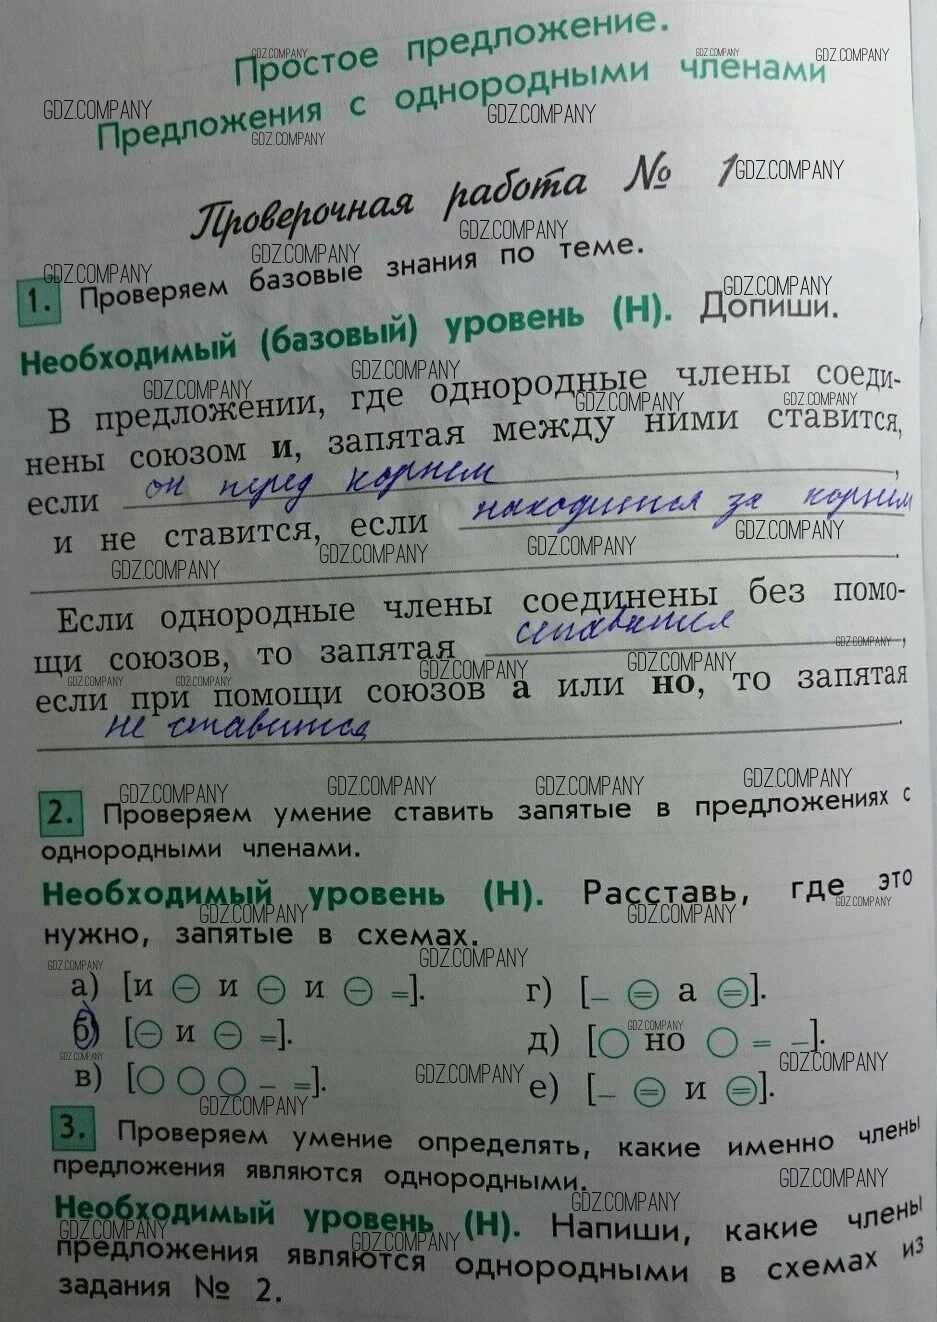 Простое предложение.
Предложения с однородными членами
Проверочная работа № 1
1. Проверяем базовые знания по теме.
Необходимый (базовый) уровень (Н). Допиши.
В предложении, где однородные члены соеди-
нены союзом и, запятая между ними ставится,
если он перед корнем ,
и не ставится, если находится за корнем
.
Если однородные члены соединены без помо-
щи союзов, то запятая ставится ,
если при помощи союзов а или но, то запятая
не ставится .
2. Проверяем умение ставить запятые в предложениях с
однородными членами.
Необходимый уровень (Н). Расставь, где это
нужно, запятые в схемах.
а) [и ⊖ и ⊖ и ⊖ =]. г) [– ⊜ а ⊜].
б) [⊖ и ⊖ =]. д) [○ но ○ = –].
в) [○ ○ ○ – =]. е) [– ⊜ и ⊜].
3. Проверяем умение определять, какие именно члены
предложения являются однородными.
Необходимый уровень (Н). Напиши, какие члены
предложения являются однородными в схемах из
задания № 2.
GDZ.COMPANY